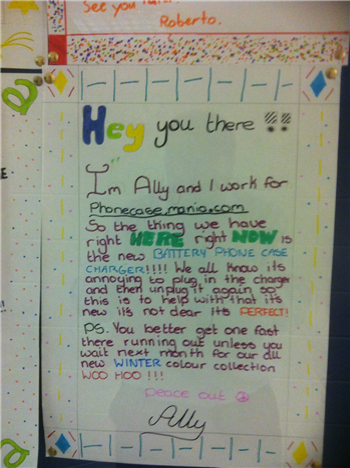 See you
Roberto.
Hey you there !!
I'm Ally and I work for
Phonecase.mania.com
So the thing we have
right HERE right NOW is
the new BATTERY PHONE CASE
CHARGER!!!! We all know its
annoying to plug in the charger
and then unplug it again so
this is to help with that its
new its not dear its PERFECT!
PS. You better get one fast
there running out unless you
wait next month for our all
new WINTER colour collection
WOO HOO !!!
peace out ☮
Ally